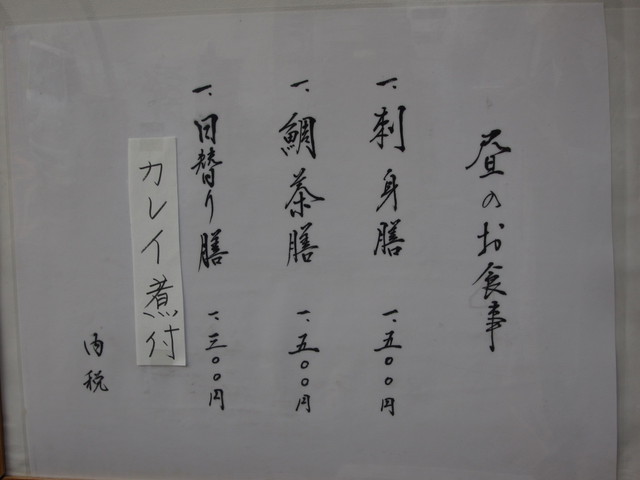 昼のお食事
一、刺身膳 一、五〇〇円
一、鯛茶膳 一、五〇〇円
一、日替り膳 一、三〇〇円
カレイ煮付
内税